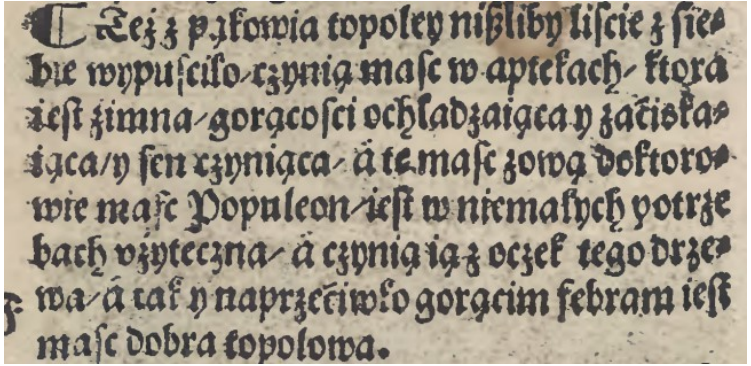 ¶ Też z pąkowia topoley niżliby liście z sie⸗
bie wypuſciło/czynią maſc w aptekach/ ktora
ieſt zimna/gorącoſci ochładzaiąca y zaciſka⸗
iąca/y ſen czyniąca/ á tę maſc zową doktoro⸗
wie maſc Populeon/ieſt w niemałych potrze
bach vżyteczna/ á czynią ią z oczek tego drze⸗
wa/á tak y naprzeciwko gorącim febram ieſt
maſc dobra topolowa.